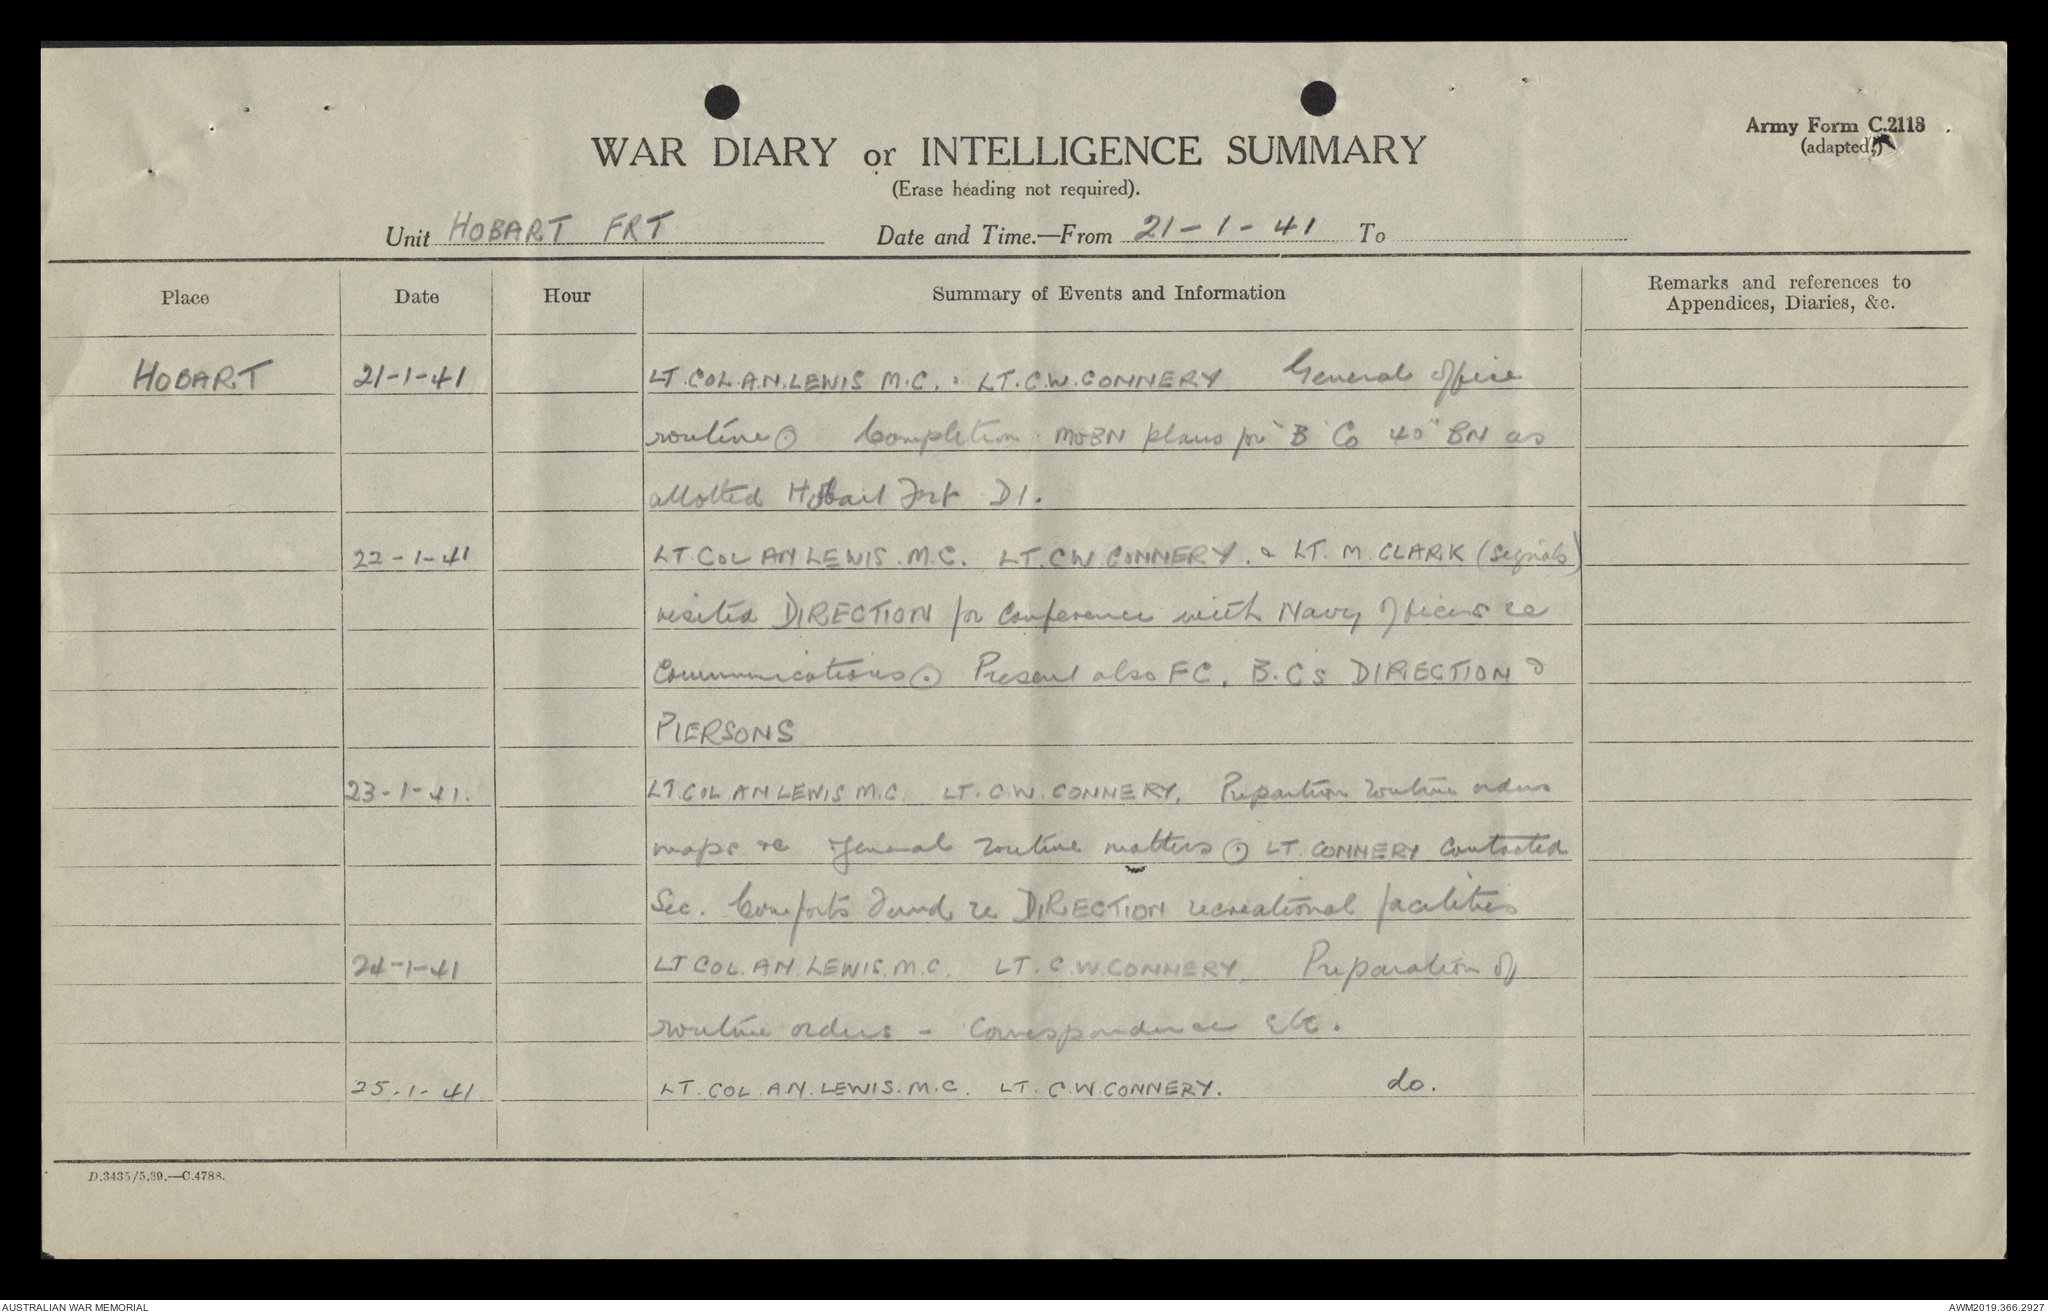 Army Form C.2118
(adapted.)
WAR DIARY or INTELLIGENCE SUMMARY
(Erase heading not required).
Unit HOBART FRT Date and Time.—From 21-1-41 To
Place Date Hour Summary of Events and Information Remarks and references to
Appendices, Diaries, &c.
HOBART 21-1-41 LT.COL.A.N.LEWIS M.C. LT.C.W.CONNERY General office
routine⊙ Completion MOBN plans for "B" Co 40" BN as
allotted Hobart Frt D1.
22-1-41 LT.COL AN LEWIS.M.C. LT.CW.CONNERY. & LT. M CLARK (signals)
visited DIRECTION for conference with Navy Officers re
Communications⊙ Present also FC. B.C's DIRECTION &
PIERSONS
23-1-41. LT.COL AN LEWIS M.C. LT.C.W.CONNERY. Prepartion routine orders
maps re General routine matters⊙ LT. CONNERY contacted
Sec. Comforts Fund re DIRECTION recreational facilities
24-1-41 LT COL. A.N. LEWIS. M.C. LT. C.W.CONNERY. Preparation of
routine orders - Correspondence etc.
25-1-41 LT. COL. A.N. LEWIS. M.C. LT. C.W.CONNERY. do.
D.3435/5.39.—C.4788.
AUSTRALIAN WAR MEMORIAL AWM2019.366.2927